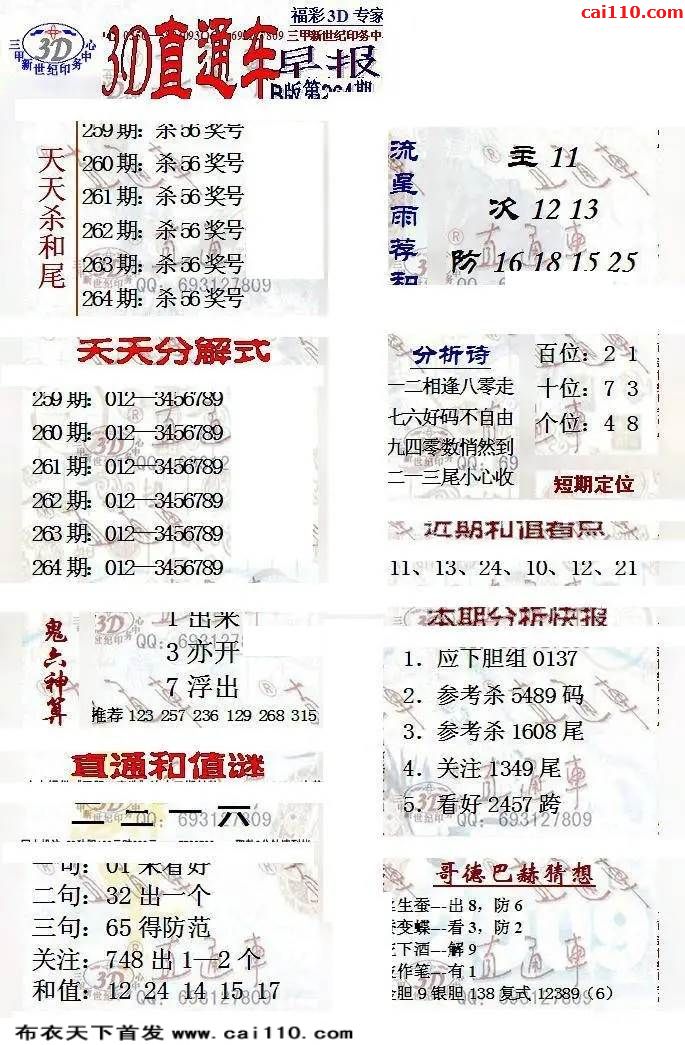 cai110.com
福彩3D 专家
三甲新世纪印务中
三甲新世纪印务中心
3D
3D直通车
早报
B版第264期
天天杀和尾
259期：杀56奖号
260期：杀56奖号
261期：杀56奖号
262期：杀56奖号
263期：杀56奖号
264期：杀56奖号
QQ: 693127809
流星雨荐和
主 11
次 12 13
防 16 18 15 25
天天分解式
259期：012—3456789
260期：012—3456789
261期：012—3456789
262期：012—3456789
263期：012—3456789
264期：012—3456789
分析诗
一二相逢八零走
七六好码不自由
九四零数悄然到
二一三尾小心收
百位：2 1
十位：7 3
个位：4 8
短期定位
近期和值看点
11、13、24、10、12、21
鬼六神算
1出来
3亦开
7浮出
推荐 123 257 236 129 268 315
本期分析快报
1．应下胆组0137
2．参考杀5489码
3．参考杀1608尾
4．关注1349尾
5．看好2457跨
QQ: 693127809
直通和值谜
QQ: 693127809
一句：01来看好
二句：32出一个
三句：65得防范
关注：748出1—2个
和值：12 24 14 15 17
哥德巴赫猜想
生蚕---出8，防6
变蝶---看3，防2
下酒---解9
作笔---有1
金胆9银胆138复式12389（6）
布衣天下首发 www.cai110.com